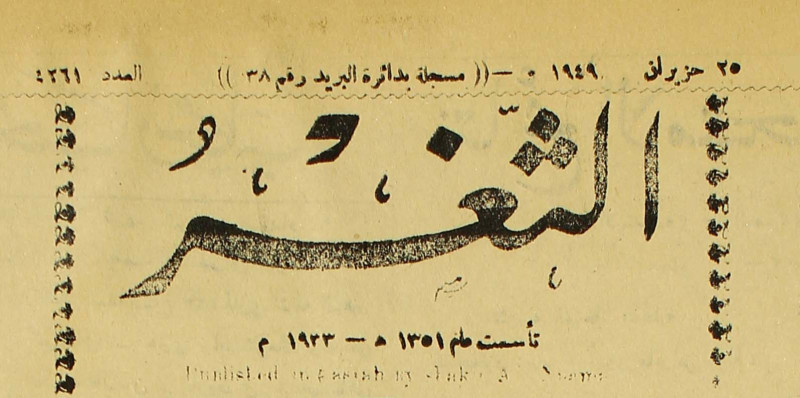 ٢٥ حزيران ١٩٤٩ ٥ —(( مسجلة بدائرة البريد رقم ٣٨ )) العدد ٤٢٦١
الثغر
تأسست عام ١٣٥١ ھ — ١٩٣٣ م
Published in